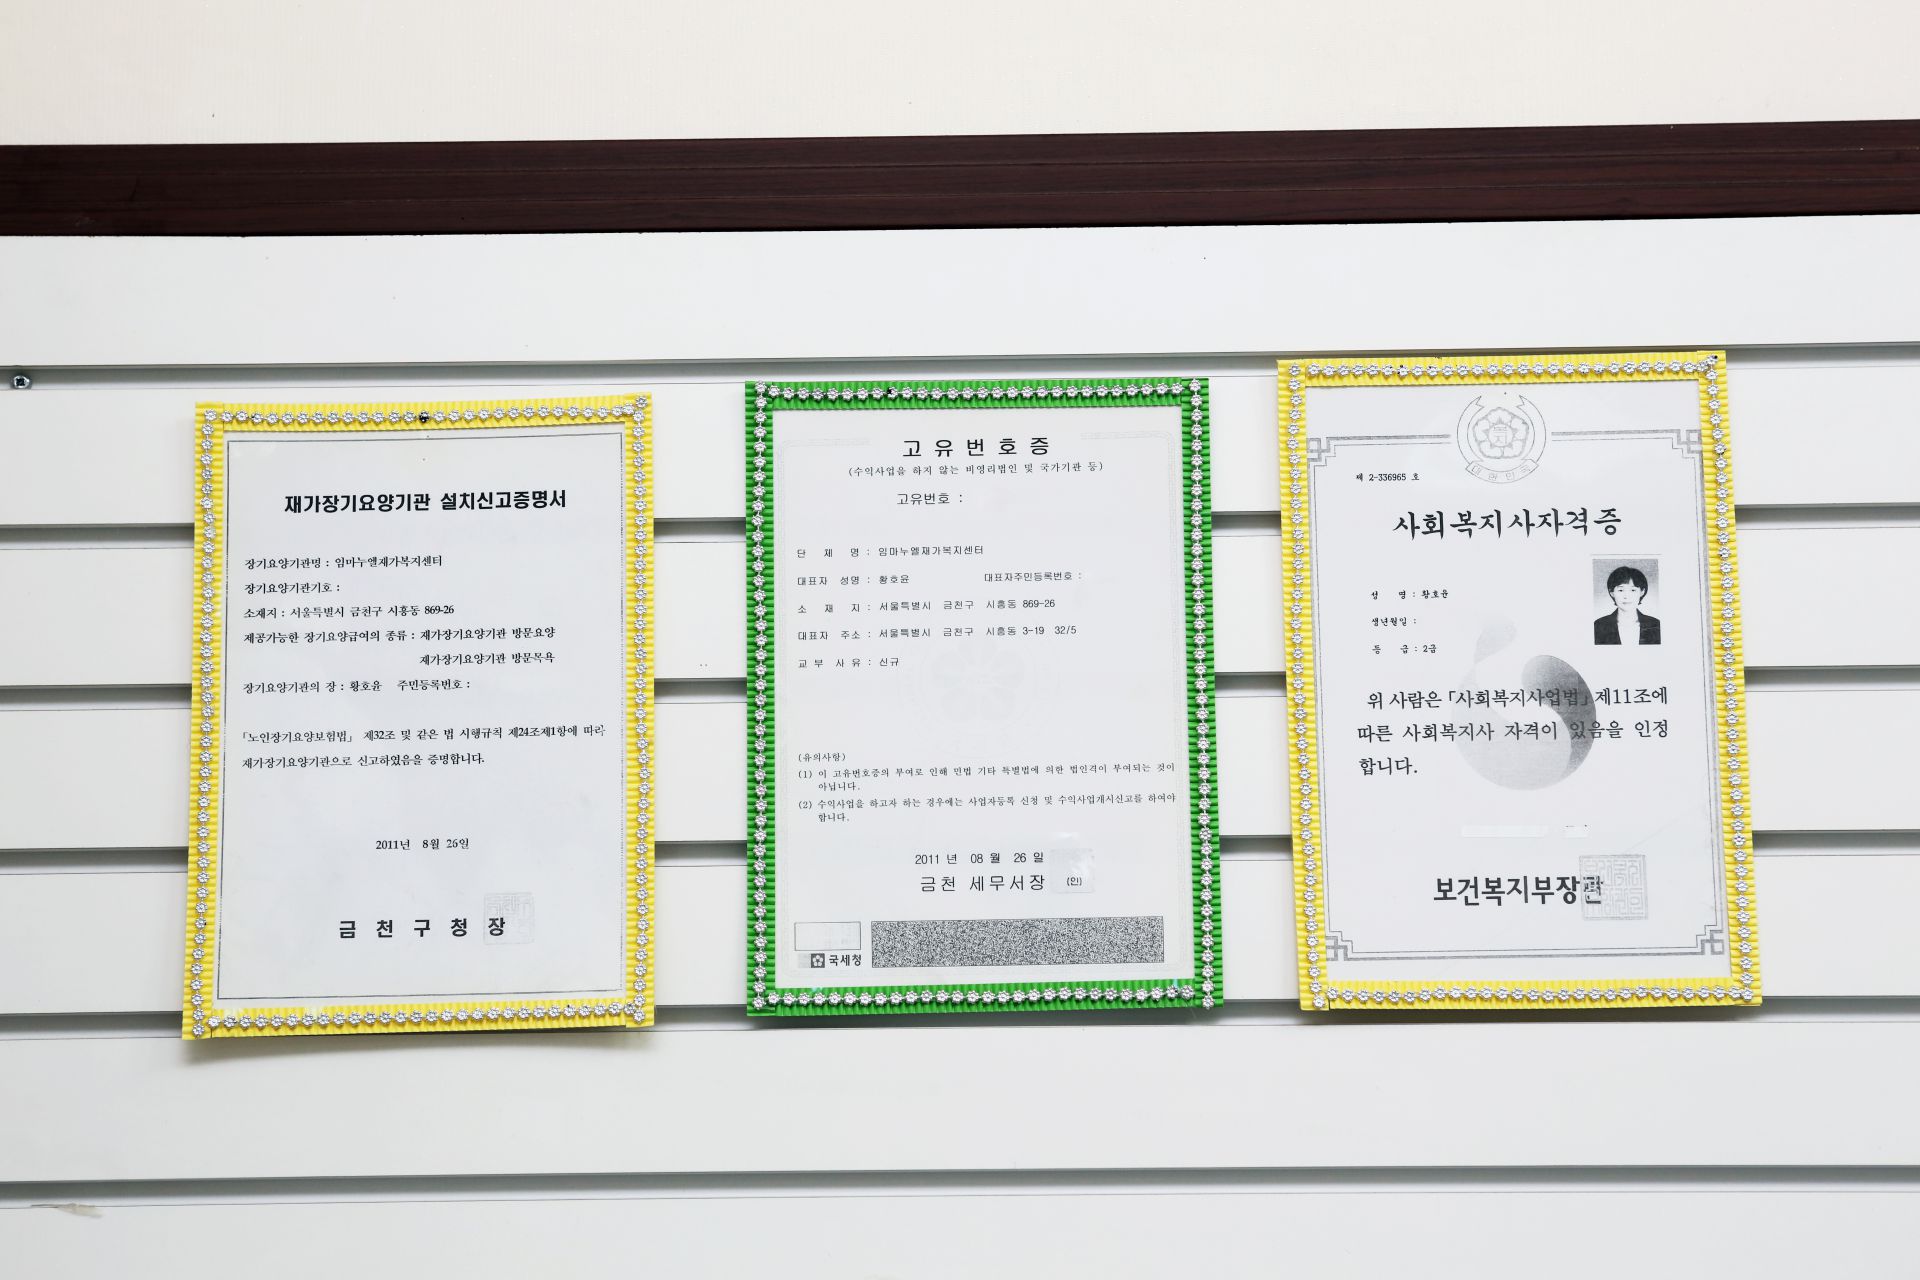 재가장기요양기관 설치신고증명서
장기요양기관명 : 임마누엘재가복지센터
장기요양기관기호 :
소재지 : 서울특별시 금천구 시흥동 869-26
제공가능한 장기요양급여의 종류 : 재가장기요양기관 방문요양
재가장기요양기관 방문목욕
장기요양기관의 장 : 황호윤 주민등록번호 :
「노인장기요양보험법」 제32조 및 같은 법 시행규칙 제24조제1항에 따라
재가장기요양기관으로 신고하였음을 증명합니다.
2011년 8월 26일
금 천 구 청 장
고 유 번 호 증
(수익사업을 하지 않는 비영리법인 및 국가기관 등)
고유번호 :
단 체 명 : 임마누엘재가복지센터
대표자 성명 : 황호윤 대표자주민등록번호 :
소 재 지 : 서울특별시 금천구 시흥동 869-26
대표자 주소 : 서울특별시 금천구 시흥동 3-19 32/5
교 부 사 유 : 신규
(유의사항)
(1) 이 고유번호증의 부여로 인해 민법 기타 특별법에 의한 법인격이 부여되는 것이
아닙니다.
(2) 수익사업을 하고자 하는 경우에는 사업자등록 신청 및 수익사업개시신고를 하여야
합니다.
2011 년 08 월 26 일
금천 세무서장 (인)
국세청
복지
대한민국
제 2-336965 호
사회복지사자격증
성 명 : 황호윤
생년월일 :
등 급 : 2급
위 사람은 「사회복지사업법」 제11조에
따른 사회복지사 자격이 있음을 인정
합니다.
보건복지부장관